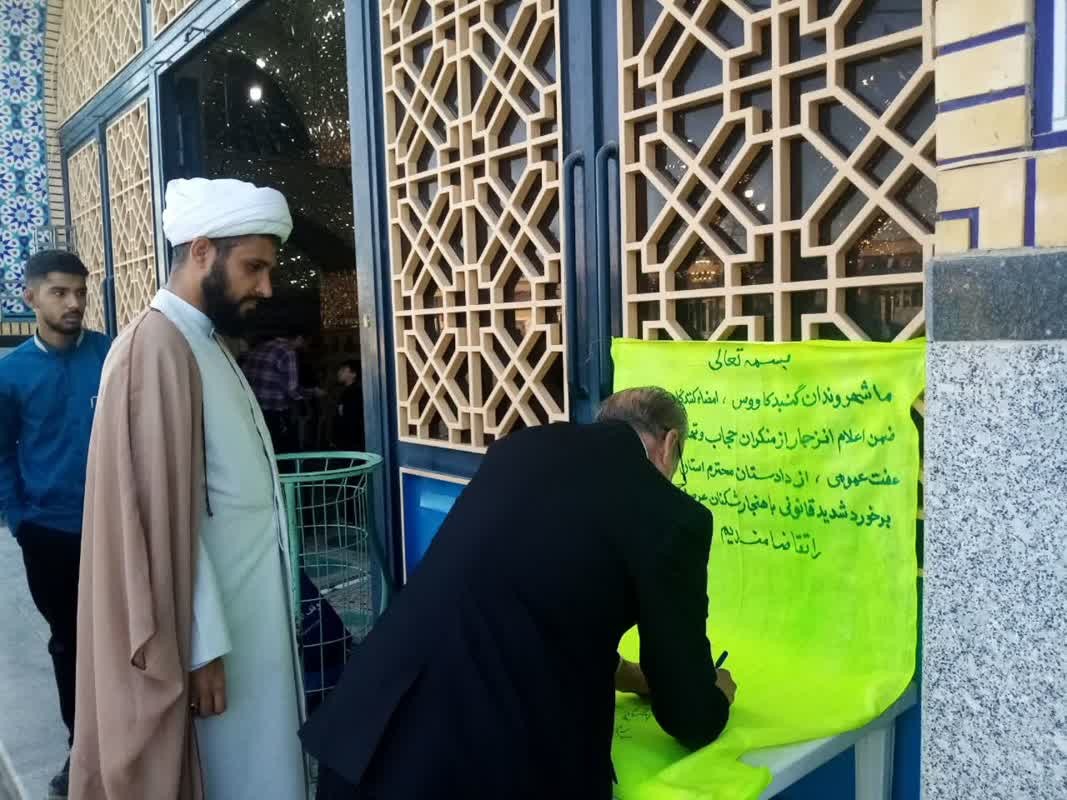 بسمه تعالی
ما شهروندان گنبدکاووس ، امضاءکنندگان
ضمن اعلام انزجار از منکران حجاب و
عفت عمومی ، از دادستان محترم
برخورد شدید قانونی با هنجارشکنان
را تقاضامندیم